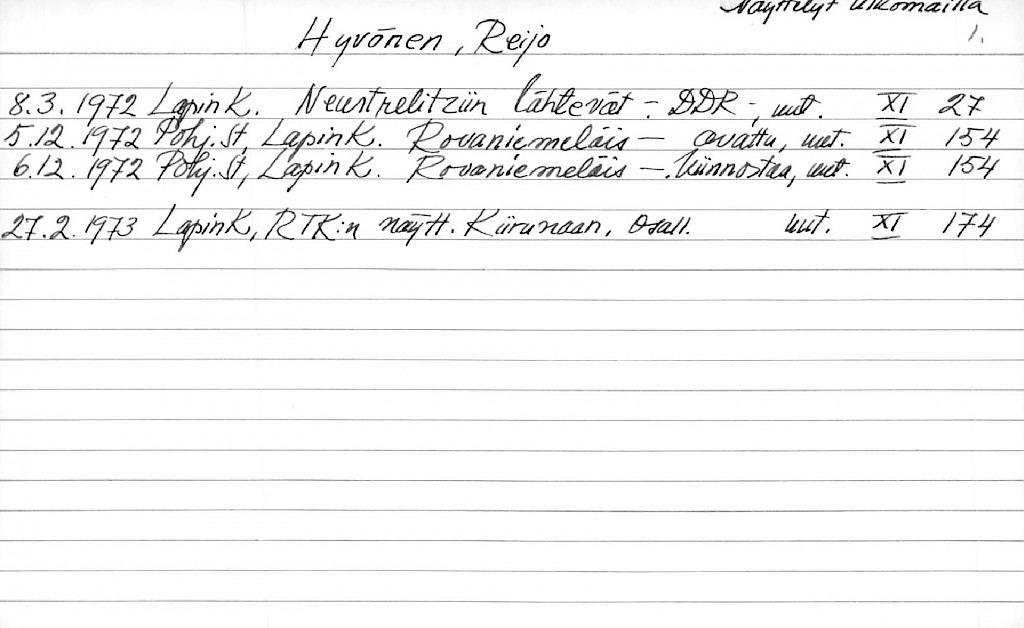 Näyttelyt ulkomailla
1.
Hyvönen, Reijo
8.3. 1972 Lapin K. Neustrelitziin lähtevät - DDR -, uut. XI 27
5.12. 1972 Pohj. St, Lapin K. Rovaniemeläis - avattu, uut. XI 154
6.12. 1972 Pohj. St, Lapin K. Rovaniemeläis - kiinnostaa, uut. XI 154
27.2. 1973 Lapin K, RTK:n näytt. Kiirunaan, osall. uut. XI 174